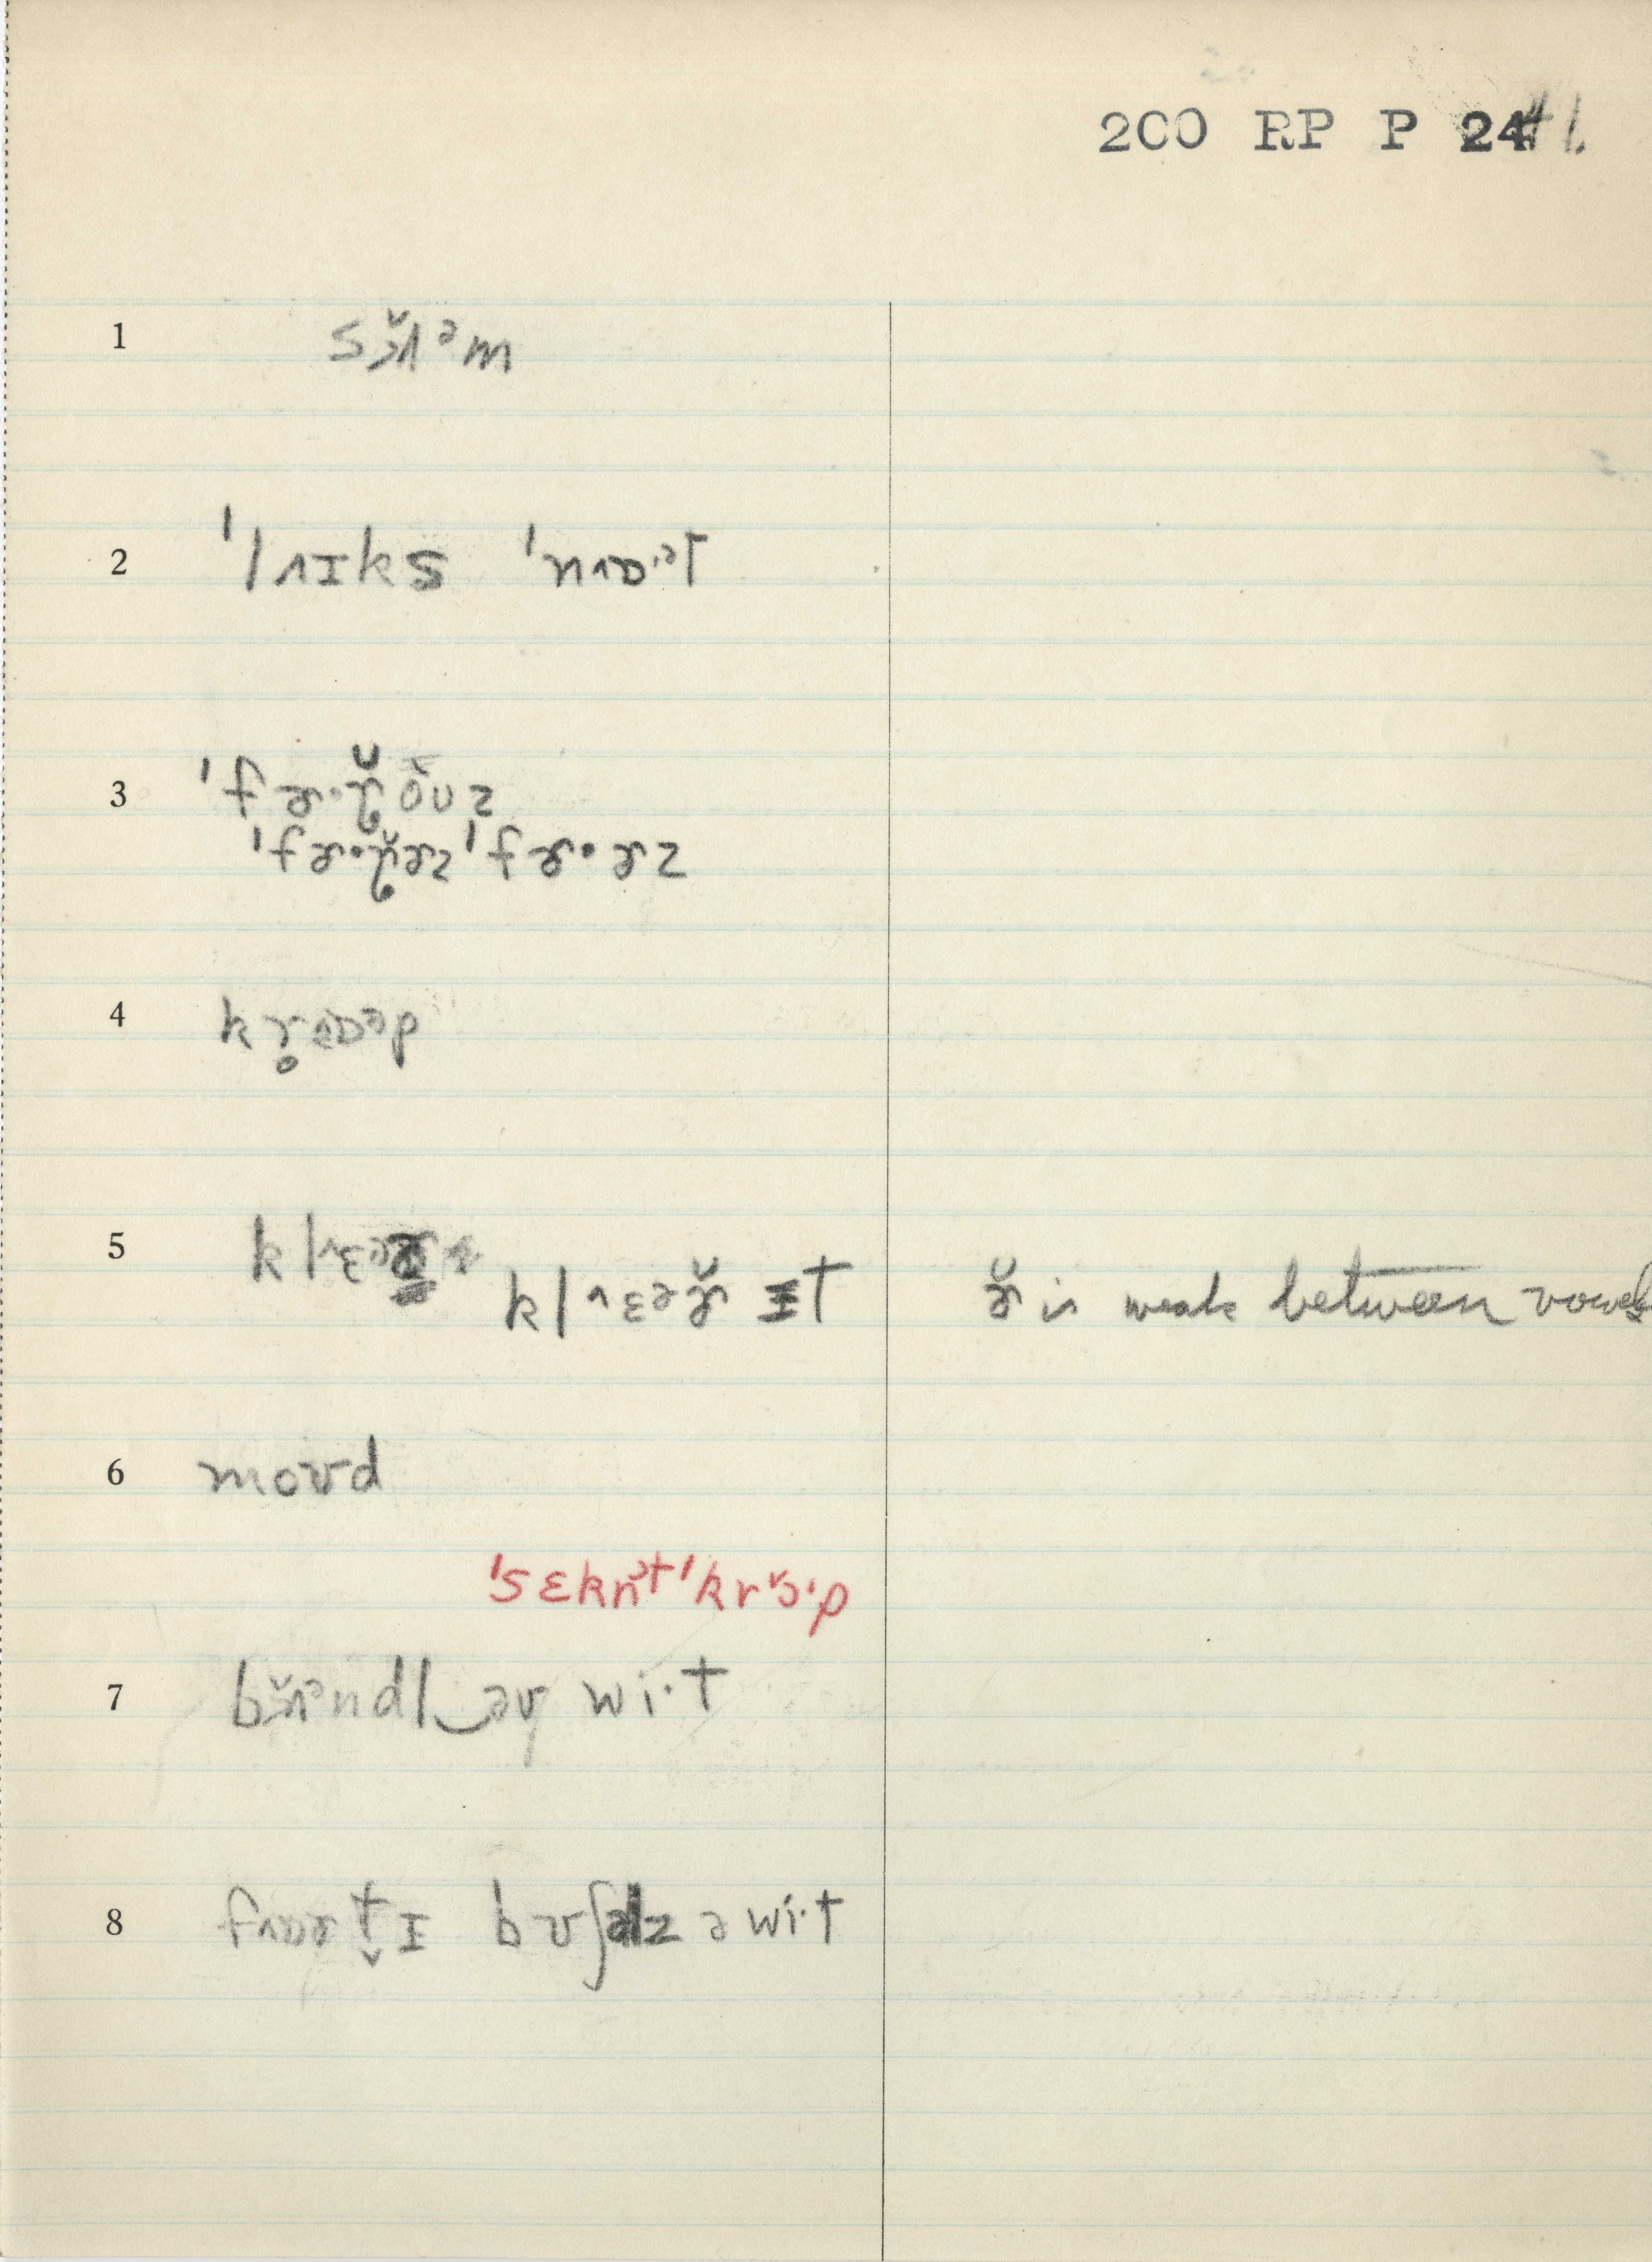 200 RP P 24 #1.
1 sɔ̆ʌᵊm
2 ˈlʌɪks ˈnʌɒ·ᵊt
3 ˈfɚ·ɣ̆ŏʊz
ˈfɚ·ɣ̆ɚz ˈfɚ·ɚz
4 kr̥ʌɒᵊp
5 kl^ɛᵊ
kl^ɛəɚ̆ ɪt ɚ̆ is weak between vowels
6 moʊd
ˈsɛknᵊtˈkrɔ̆·p
7 bɔ̆ʌᵊndl‿əv wi·t
8 fʌɒɚt̬ɪ bʊʃəlz ə wi·t